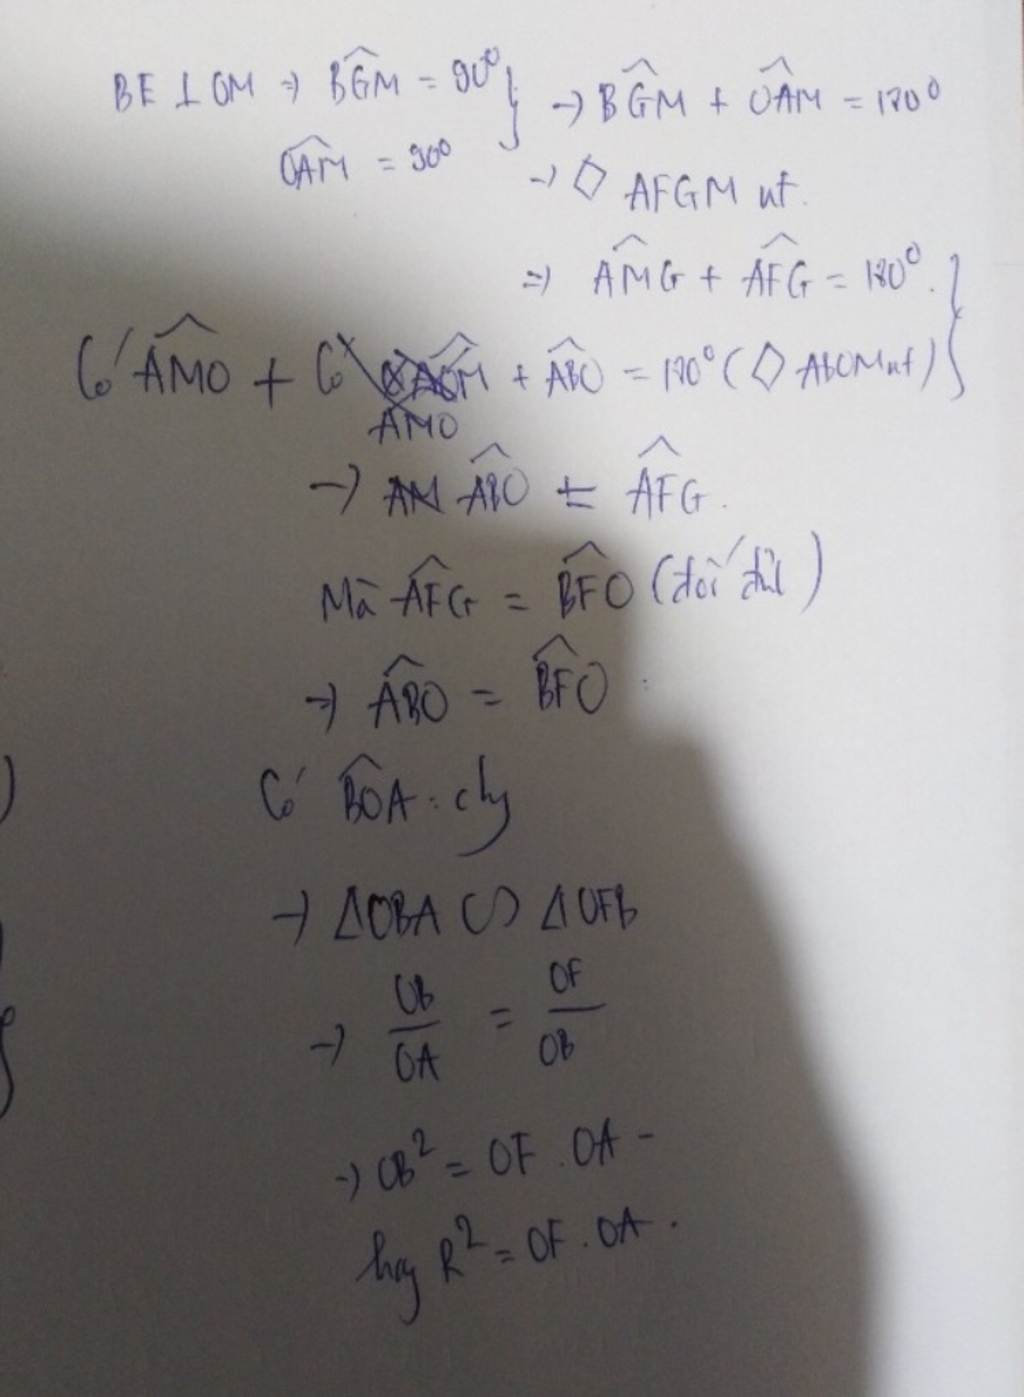 BE ⊥ OM ⇒ BĜM = 90⁰ } → BĜM + OÂM = 180⁰
OÂM = 90⁰
→ ◇ AFGM nt.
⇒ AM̂G + AF̂G = 180⁰. }
Có AM̂O + AB̂O = 180⁰ (◇ ABOM nt)
→ AB̂O = AF̂G.
Mà AF̂G = BF̂O (đối đỉnh)
→ AB̂O = BF̂O
Có BÔA: chg
→ ΔOBA ∽ ΔOFB
→ OB/OA = OF/OB
→ OB² = OF . OA
hay R² = OF . OA.